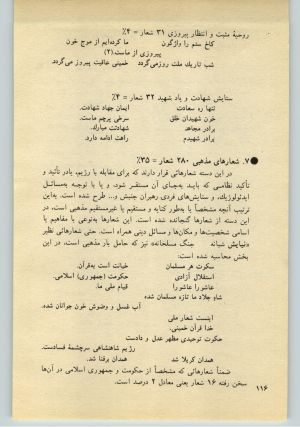 روحیهٔ مثبت و انتظار پیروزی ۳۱ شعار = ۴٪
کاخ ستم را واژگون ما کرده‌ایم از موج خون
پیروزی از ماست.(۲)
شب تاریک ملت روز می‌گردد خمینی عاقبت پیروز می‌گردد
ستایش شهادت و یاد شهید ۳۲ شعار = ۴٪
تنها ره سعادت ایمان جهاد شهادت.
خون شهیدان خلق سرخی پرچم ماست.
برادر مجاهد شهادتت مبارک.
برادر شهیدم راهت ادامه دارد.
۷. شعارهای مذهبی ۲۸۰ شعار = ۳۵٪
در این دسته شعارهائی قرار دارند که برای مقابله با رژیم، یا در تأئید و
تأکید نظامی که باید به‌جای آن مستقر شود، و یا با توجه به‌مسائل
ایدئولوژیک، و ستایش‌های فردی رهبران جنبش و... طرح شده است. به‌این
ترتیب آنچه مشخصاً یا به‌طور کنایه و مستقیم یا غیرمستقیم مذهبی است، در
این دسته از شعارها گنجانده شده است. این شعارها به‌نوعی با مفاهیم یا
اسامی شخصیت‌ها و مکان‌ها و مسائل دینی همراه است. حتی شعارهائی نظیر
«نیایش شبانه جنگ مسلحانه» نیز که حامل بار مذهبی است، در این
بخش محاسبه شده است:
سکوت هر مسلمان خیانت است به‌قرآن.
استقلال آزادی حکومت (جمهوری) اسلامی.
عاشورا عاشورا قیام ملی ما.
شاه جلاد ما تازه مسلمان شده
آب غسل و وضوش خون جوانان شده.
اینست شعار ملی
خدا قرآن خمینی.
حکومت توحیدی مظهر عدل و دادست
رژیم شاهنشاهی سرچشمهٔ فسادست.
همدان کربلا شد همدان برفنا شد.
ضمناً شعارهائی که مشخصاً از حکومت و جمهوری اسلامی در آن‌ها
سخن رفته ۱۶ شعار یعنی معادل ۲ درصد است.
۱۱۶